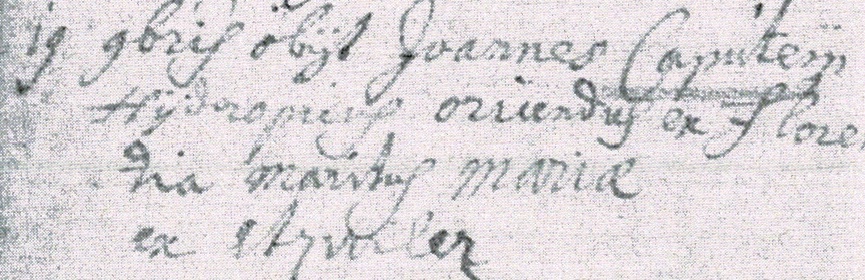 19 9bris obijt Joannes Caputeijn
Hijdropicus oriundus ex Floren
tia maritus Mariæ
ex